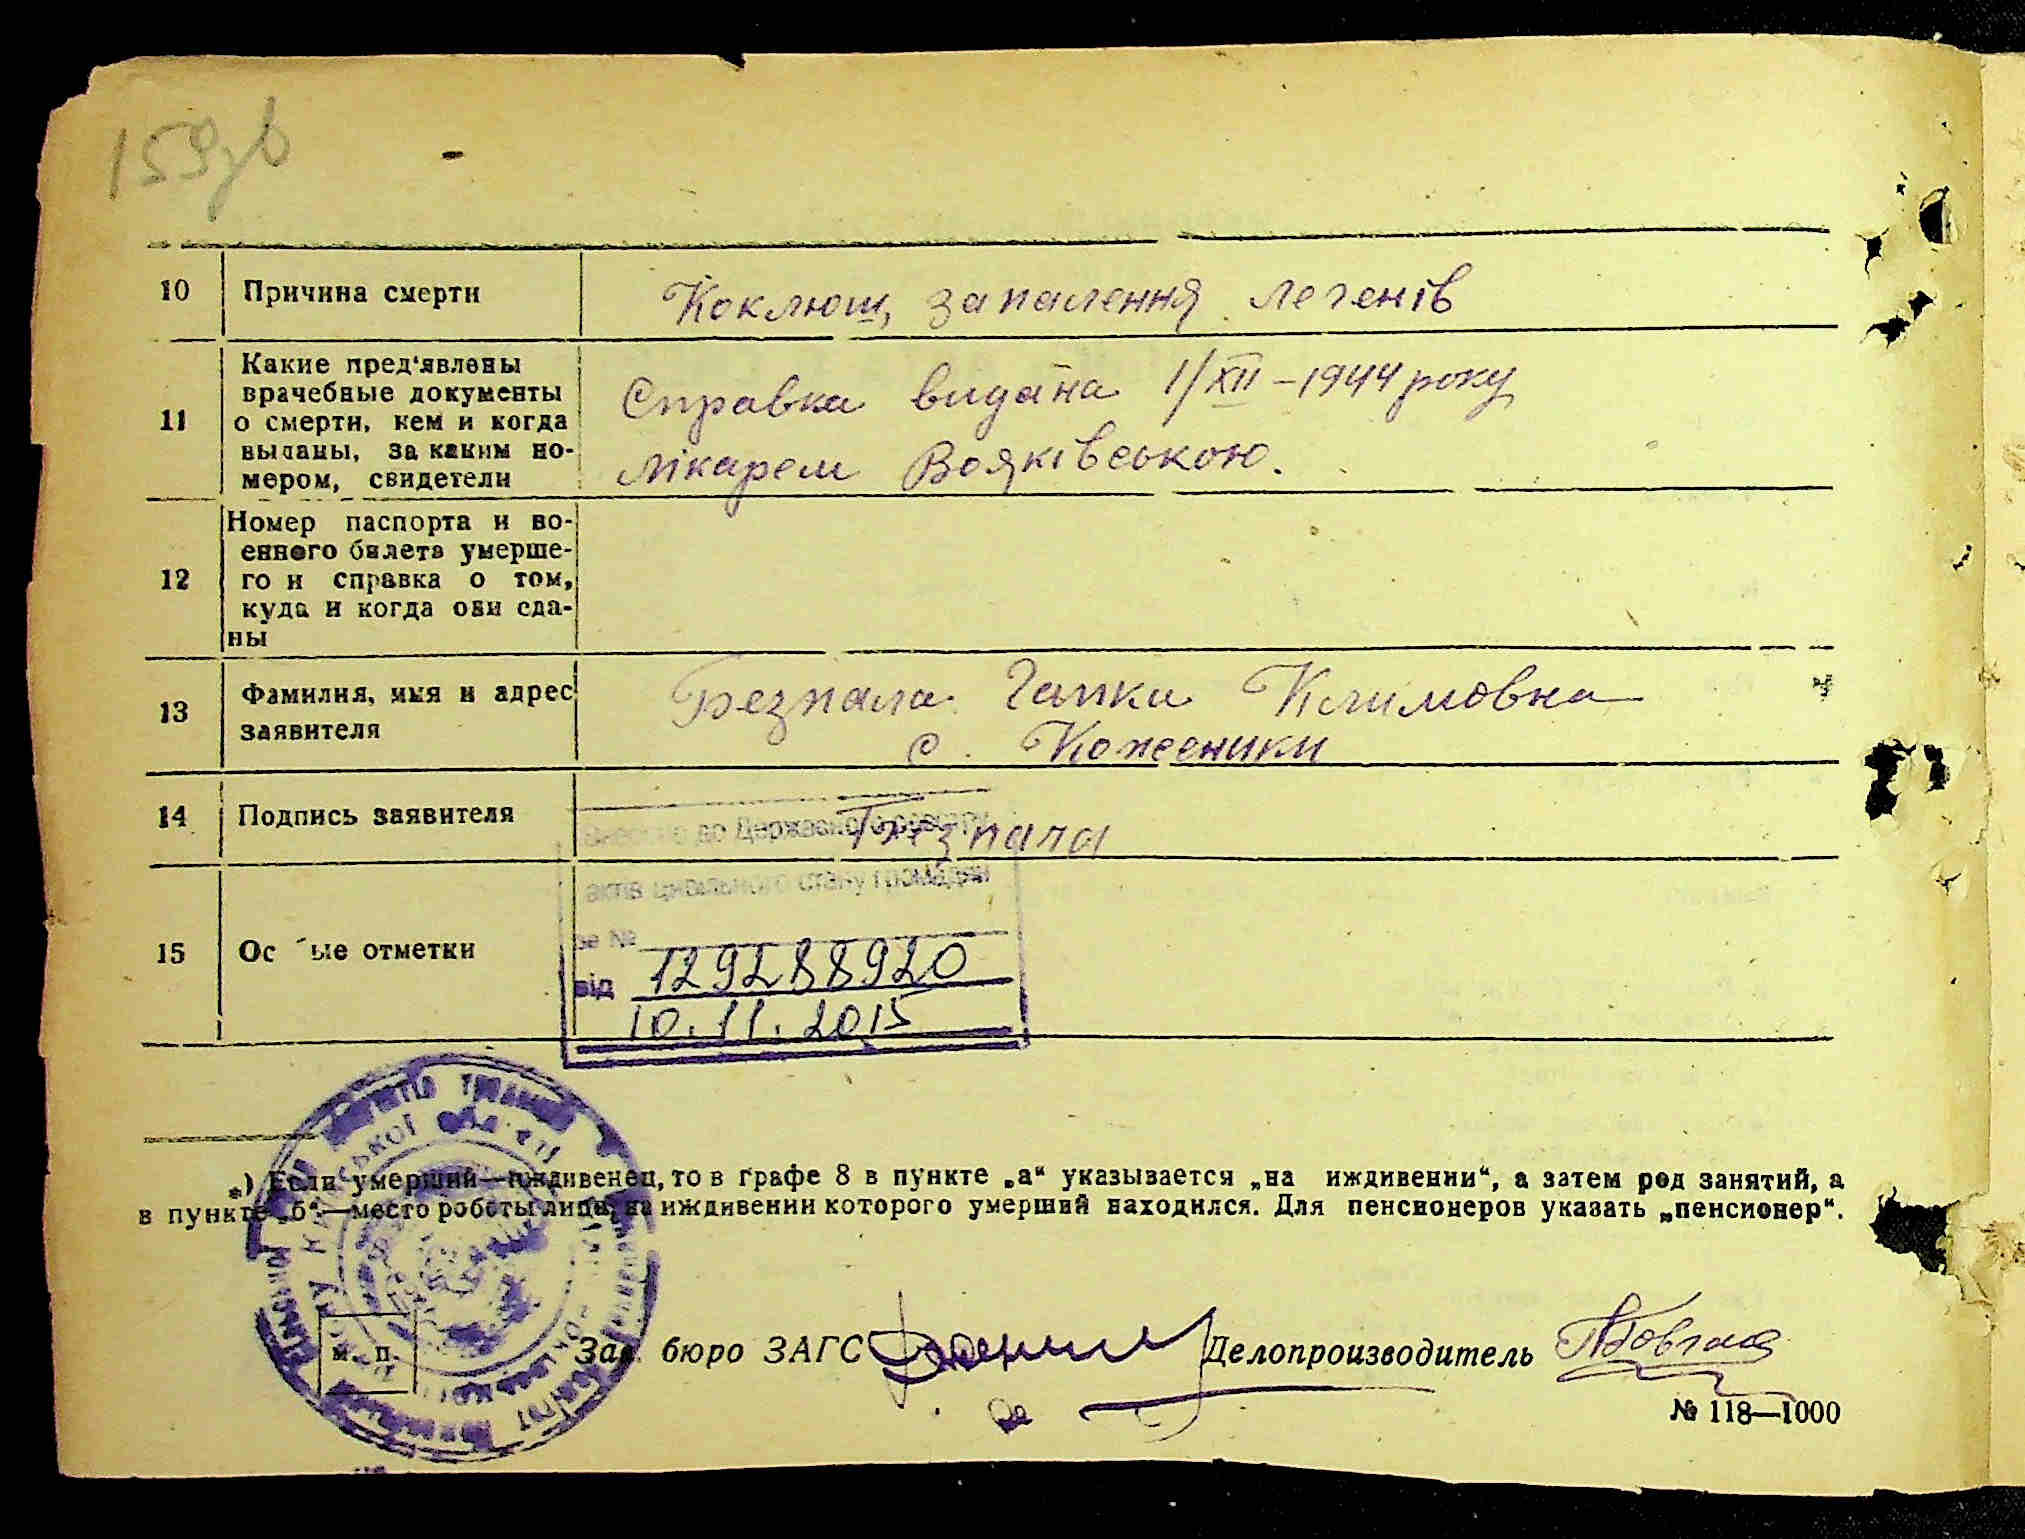 159зв
10 Причина смерти Коклюш, запалення легенів
11 Какие пред'явлены
врачебные документы
о смерти, кем и когда
выданы, за каким но-
мером, свидетели
Справка видана 1/XII-1944 року
лікарем Вояківською.
12 Номер паспорта и во-
енного билета умерше-
го и справка о том,
куда и когда они сда-
ны
13 Фамилия, имя и адрес
заявителя
Безпала Гапка Климовна
с. Кожсники
14 Подпись заявителя Безпала
до Державного реєстру
актів цивільного стану громадян
за №
15 Ос ые отметки
129288920
від 10.11.2015
*) Если умерший—иждивенец, то в графе 8 в пункте „а“ указывается „на иждивении“, а затем род занятий, а
в пункте „б“—место роботы лица, на иждивении которого умерший находился. Для пенсионеров указать „пенсионер“.
м. п. Зав. бюро ЗАГС Делопроизводитель
№ 118—1000